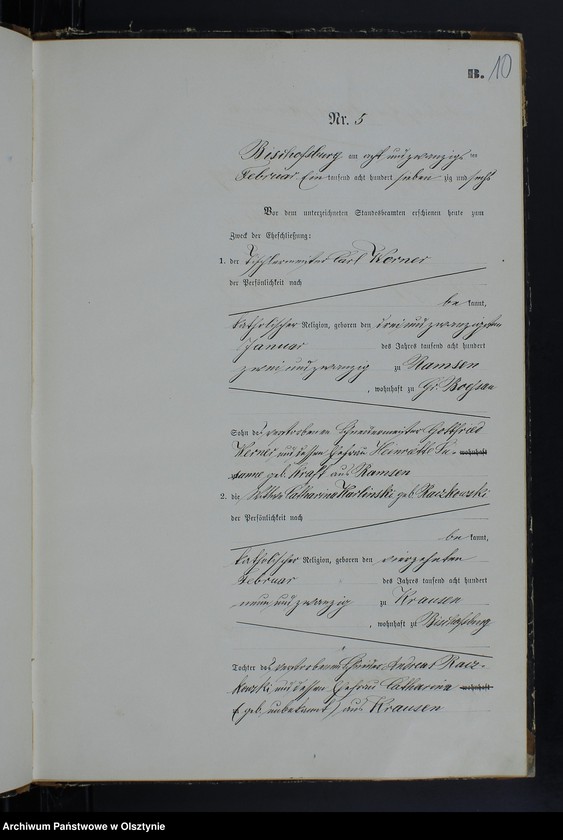 B. 10
Nr. 5
Bischofsburg am acht und zwanzigsten
Februar Ein tausend acht hundert sieben zig und sechs
Vor dem unterzeichneten Standesbeamten erschienen heute zum
Zweck der Eheschließung:
1. der Tischlermeister Carl Korner
der Persönlichkeit nach
be kannt,
katholischer Religion, geboren den drei und zwanzigsten
Januar des Jahres tausend acht hundert
zwei und zwanzig zu Ramsen
, wohnhaft zu Gr. Boessau
Sohn des verstorbenen Gottfried
und dessen Ehefrau
geb. Kraft aus Ramsen
2. die Wittwe Catharina Karlinski geb. Raczkowski
der Persönlichkeit nach
be kannt,
katholischer Religion, geboren den vierzehnten
Februar des Jahres tausend acht hundert
neun und zwanzig zu Krausen
, wohnhaft zu Bischofsburg
Tochter des verstorbenen Andreas Racz-
kowski und dessen Ehefrau Catharina wohnhaft
(geb. unbekannt) aus Krausen
Archiwum Państwowe w Olsztynie